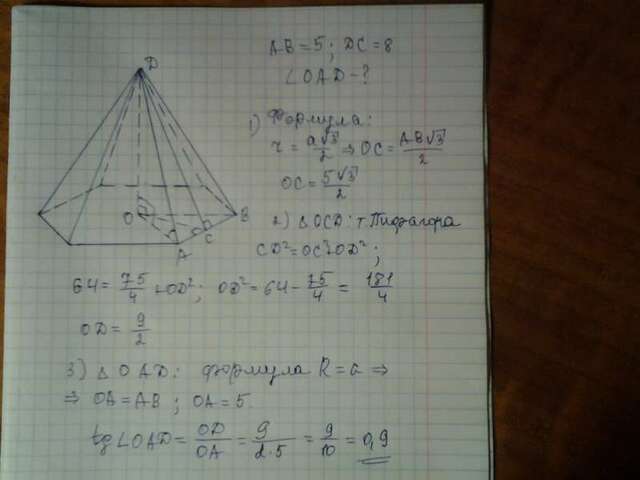 D
O
B
C
A
AB = 5; DC = 8
∠OAD - ?
1) Формула:
r = a√3/2 ⇒ OC = AB√3/2
OC = 5√3/2
2) △OCD: т. Пифагора
CD² = OC² + OD²;
64 = 75/4 + OD²; OD² = 64 - 75/4 = 181/4
OD = 9/2
3) △OAD: формула R = a ⇒
⇒ OA = AB; OA = 5
tg∠OAD = OD/OA = 9/2·5 = 9/10 = 0,9